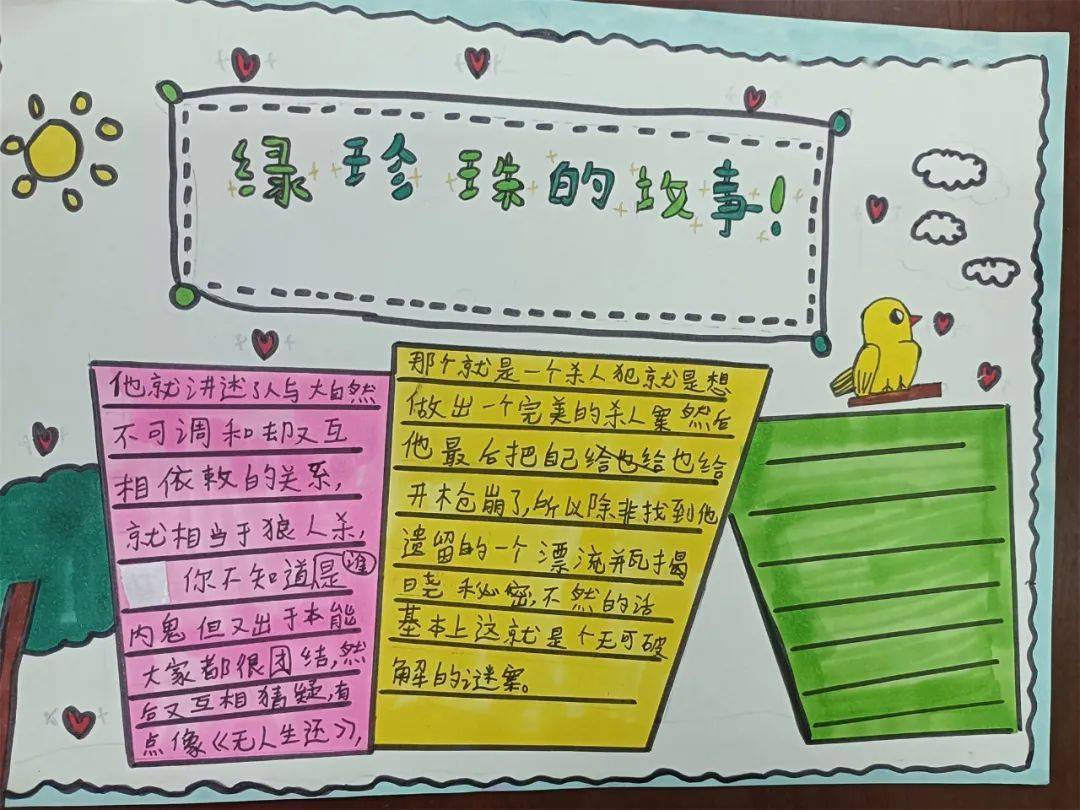 绿珍珠的故事!
他就讲述了人与大自然
不可调和却又互
相依赖的关系,
就相当于狼人杀,
你不知道是谁
内鬼但又出于本能
大家都很团结,然
后又互相猜疑,有
点像《无人生还》,
那个就是一个杀人犯就是想
做出一个完美的杀人案然后
他最后把自己给也给也给
开枪崩了,所以除非找到他
遗留的一个漂流瓶揭
晓秘密,不然的话
基本上这就是个无可破
解的谜案。